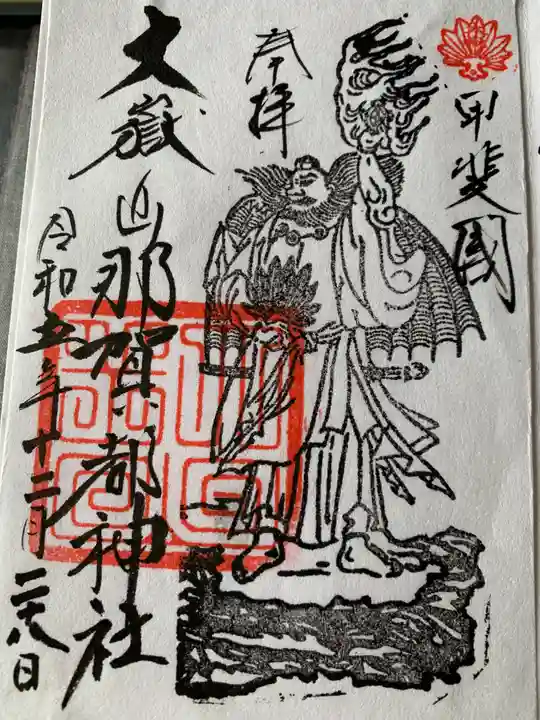 甲斐國
奉拝
大嶽山那賀都神社
令和五年十二月二十八日